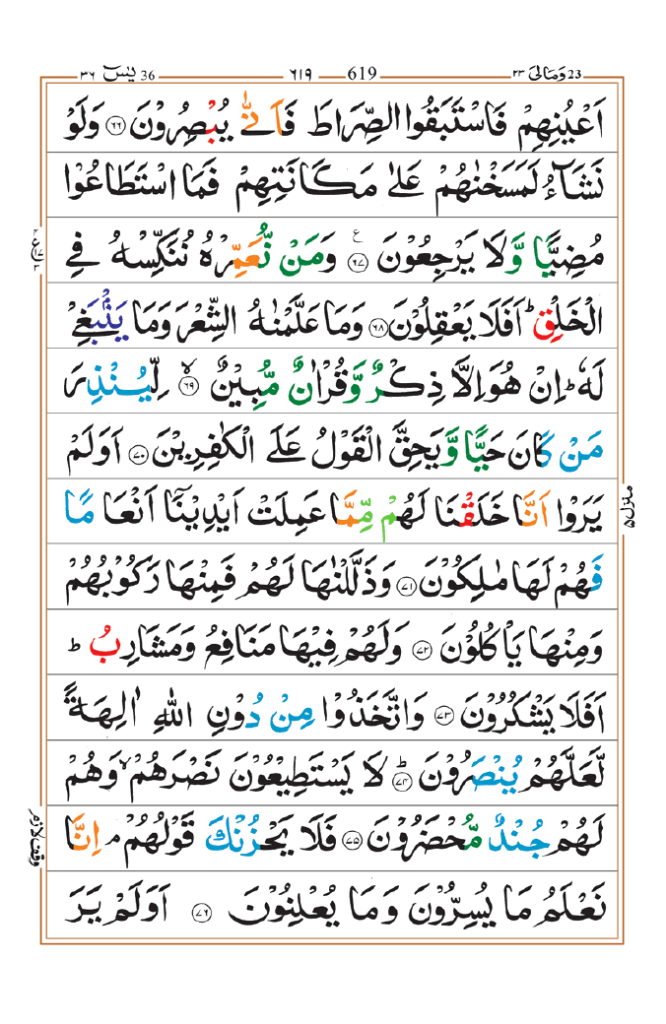 يٰسٓ 36 ٣٦ 619 ٦١٩ وَمَالِىَ 23 ٢٣
اَعۡيُنِهِمۡ فَاسۡتَبَقُوا الصِّرَاطَ فَاَنّٰى يُبۡصِرُوۡنَ ﴿۶۶﴾ وَلَوۡ
نَشَآءُ لَمَسَخۡنٰهُمۡ عَلٰى مَكَانَتِهِمۡ فَمَا اسۡتَطَاعُوۡا
مُضِيًّا وَّلَا يَرۡجِعُوۡنَ ﴿۶۷﴾ وَمَنۡ نُّعَمِّرۡهُ نُنَكِّسۡهُ فِى
الۡخَـلۡقِ ؕ اَفَلَا يَعۡقِلُوۡنَ ﴿۶۸﴾ وَمَا عَلَّمۡنٰهُ الشِّعۡرَ وَمَا يَنۡۢبَغِىۡ
لَهٗ ؕ اِنۡ هُوَ اِلَّا ذِكۡرٌ وَّقُرۡاٰنٌ مُّبِيۡنٌ ۙ ﴿۶۹﴾ لِّيُنۡذِرَ
مَنۡ كَانَ حَيًّا وَّيَحِقَّ الۡقَوۡلُ عَلَى الۡكٰفِرِيۡنَ ﴿۷۰﴾ اَوَلَمۡ
يَرَوۡا اَنَّا خَلَقۡنَا لَهُمۡ مِّمَّا عَمِلَتۡ اَيۡدِيۡنَاۤ اَنۡعَامًا
فَهُمۡ لَهَا مٰلِكُوۡنَ ﴿۷۱﴾ وَذَلَّـلۡنٰهَا لَهُمۡ فَمِنۡهَا رَكُوۡبُهُمۡ
وَمِنۡهَا يَاۡكُلُوۡنَ ﴿۷۲﴾ وَلَهُمۡ فِيۡهَا مَنَافِعُ وَمَشَارِبُ ؕ
اَفَلَا يَشۡكُرُوۡنَ ﴿۷۳﴾ وَاتَّخَذُوۡا مِنۡ دُوۡنِ اللّٰهِ اٰلِهَةً
لَّعَلَّهُمۡ يُنۡصَرُوۡنَ ؕ ﴿۷۴﴾ لَا يَسۡتَطِيۡعُوۡنَ نَصۡرَهُمۡ ۙ وَهُمۡ
لَهُمۡ جُنۡدٌ مُّحۡضَرُوۡنَ ﴿۷۵﴾ فَلَا يَحۡزُنۡكَ قَوۡلُهُمۡ ۘ اِنَّا
نَعۡلَمُ مَا يُسِرُّوۡنَ وَمَا يُعۡلِنُوۡنَ ﴿۷۶﴾ اَوَلَمۡ يَرَ
منزل ۵
وقف لازم